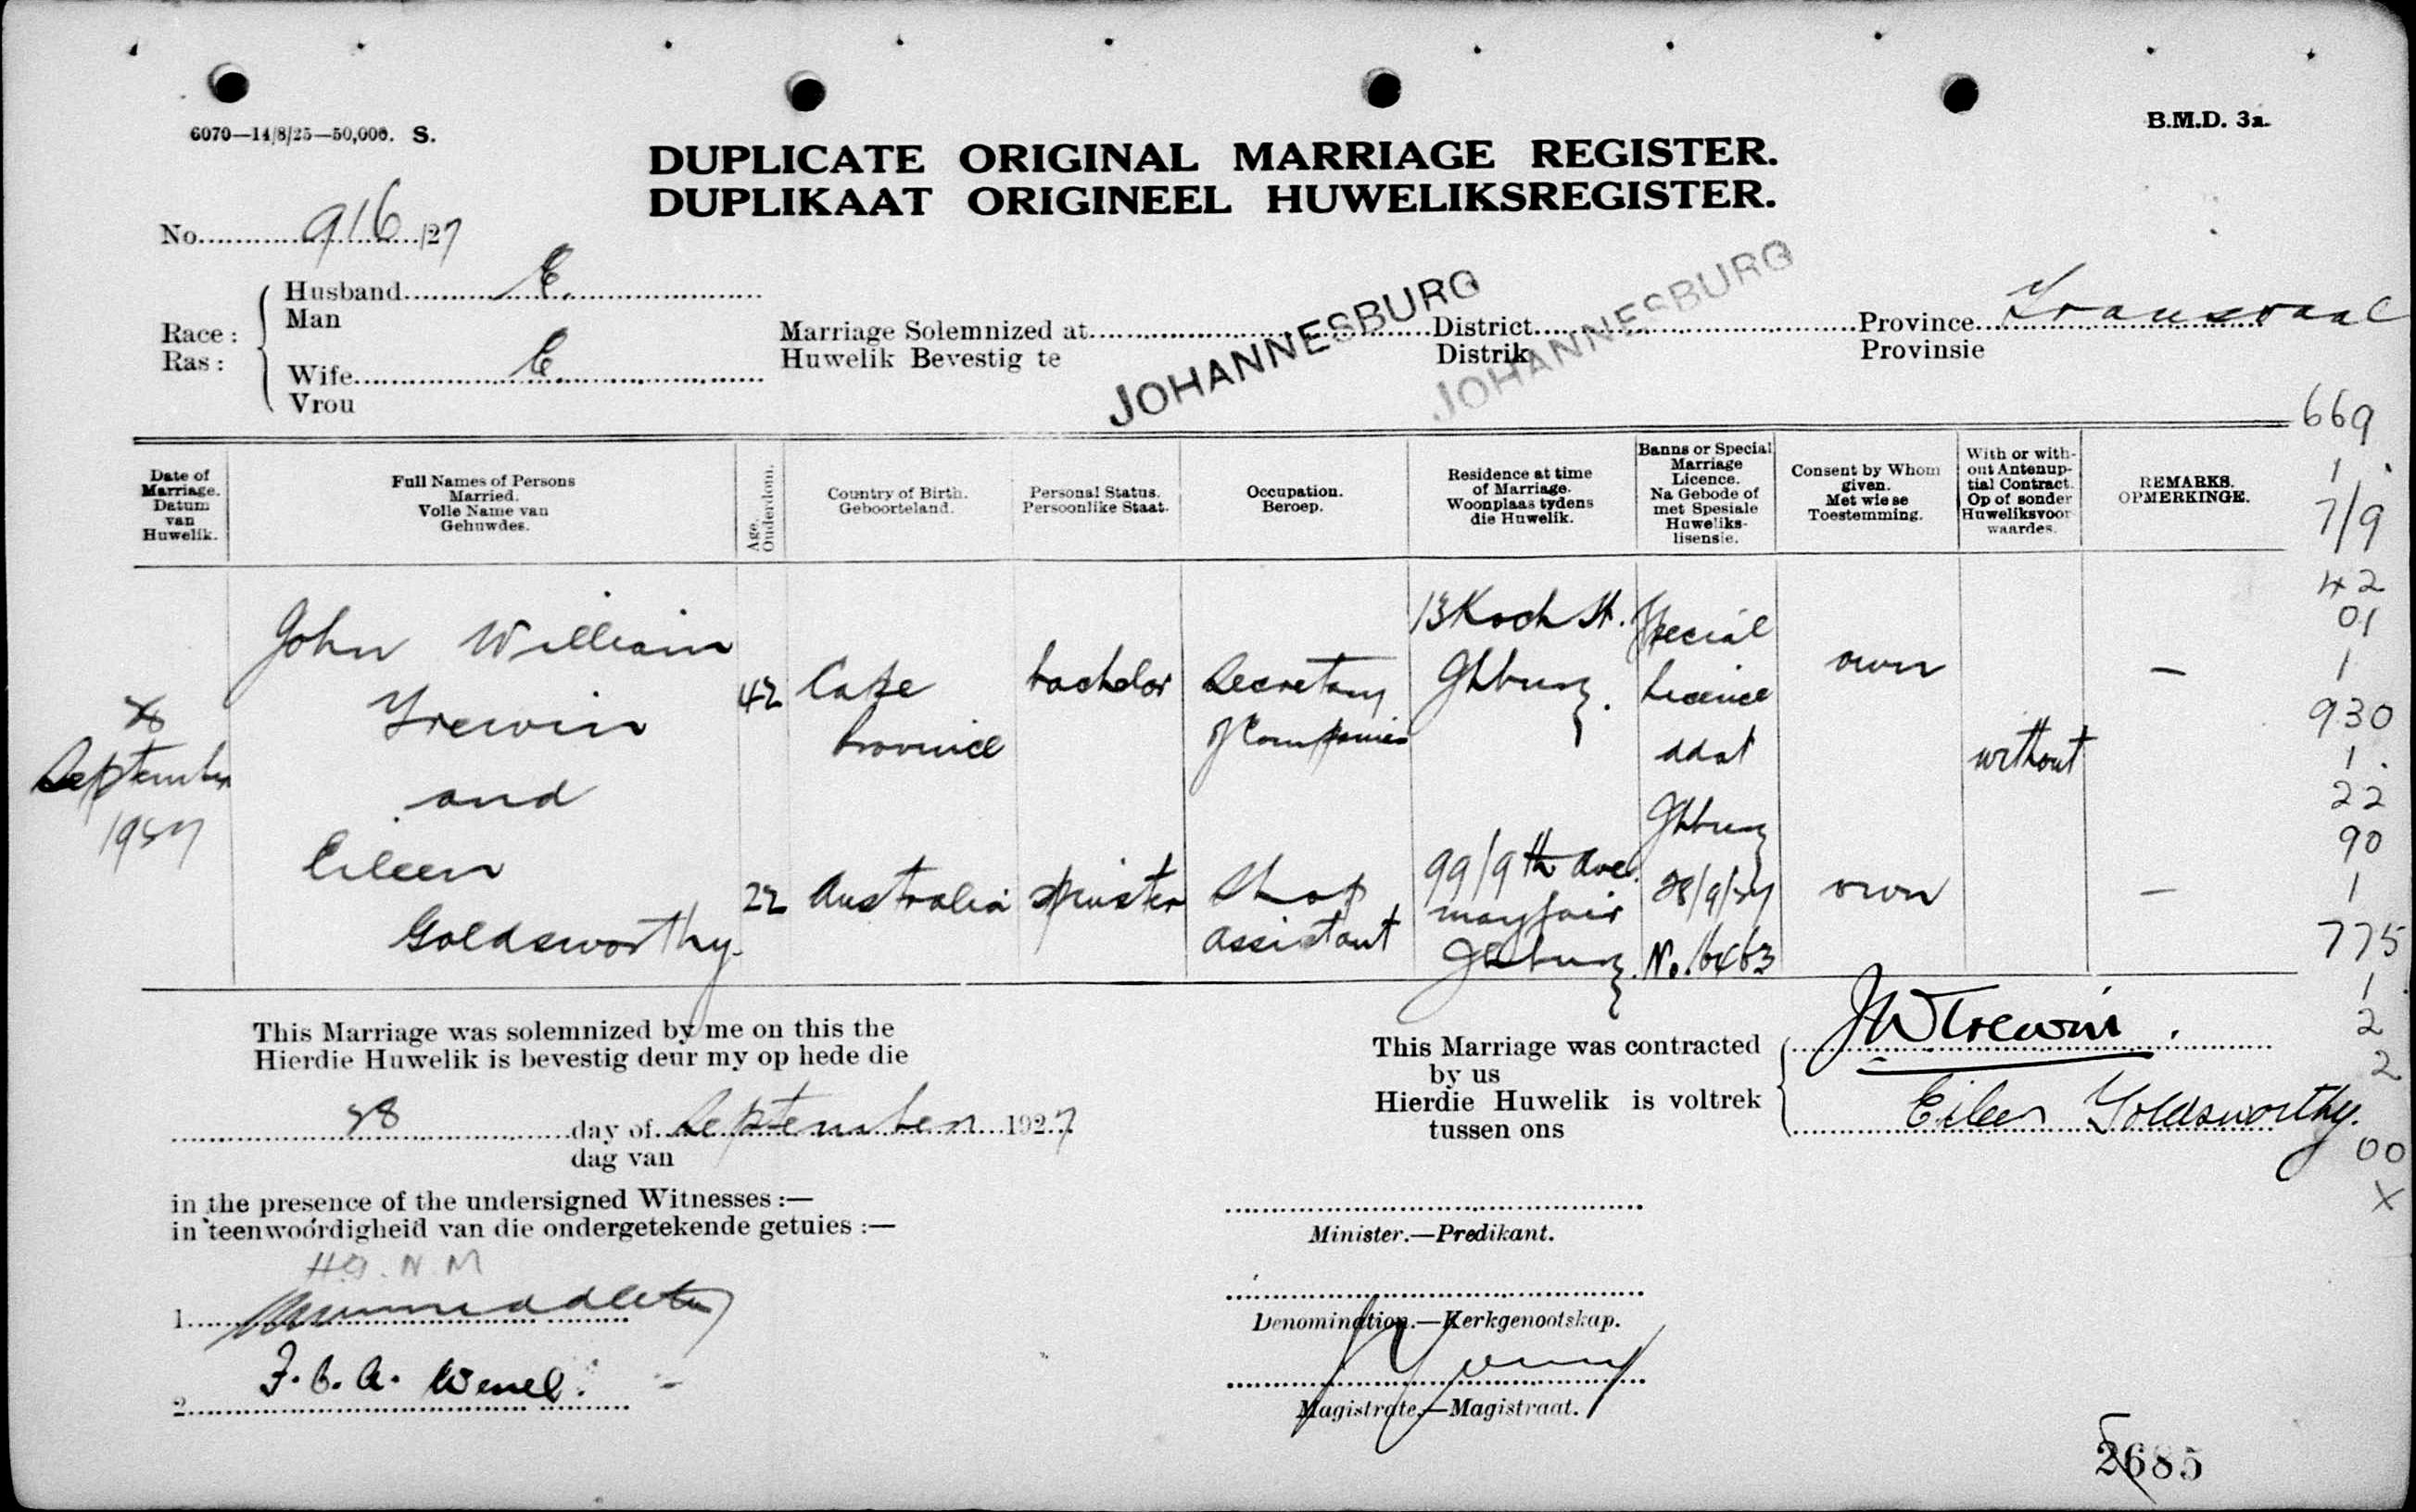 6070—14/8/25—50,000. S.
B.M.D. 3a.
DUPLICATE ORIGINAL MARRIAGE REGISTER.
DUPLIKAAT ORIGINEEL HUWELIKSREGISTER.
No. 916/27
Race: Husband E.
Ras: Man
Wife E.
Vrou
Marriage Solemnized at JOHANNESBURG District JOHANNESBURG Province Transvaal
Huwelik Bevestig te Distrik Provinsie
Date of Marriage. Datum van Huwelik.
Full Names of Persons Married. Volle Name van Gehuwdes.
Age. Ouderdom.
Country of Birth. Geboorteland.
Personal Status. Persoonlike Staat.
Occupation. Beroep.
Residence at time of Marriage. Woonplaas tydens die Huwelik.
Banns or Special Marriage Licence. Na Gebode of met Spesiale Huweliks-lisensie.
Consent by Whom given. Met wie se Toestemming.
With or without Antenuptial Contract. Op of sonder Huweliksvoorwaardes.
REMARKS. OPMERKINGE.
28 September 1927
John William Trewin
42
Cape Province
bachelor
Secretary of Companies
13 Koch St. Jhburg.
Special Licence dd at Jhburg 28/9/27
own
without
—
and
Eileen Goldsworthy.
22
Australia
spinster
Shop assistant
99/9th Ave. Mayfair Jhburg.
own
—
669
1
7/9
42
01
1
930
1
22
90
1
775
1
2
2
00
X
This Marriage was solemnized by me on this the
Hierdie Huwelik is bevestig deur my op hede die
28 day of September 1927
dag van
in the presence of the undersigned Witnesses:—
in teenwoordigheid van die ondergetekende getuies:—
H.G. N. M
1. Middleton
2. F. C. A. Wenel.
This Marriage was contracted
by us
Hierdie Huwelik is voltrek
tussen ons
JW Trewin.
Eileen Goldsworthy.
Minister.—Predikant.
Denomination.—Kerkgenootskap.
Magistrate.—Magistraat.
2685